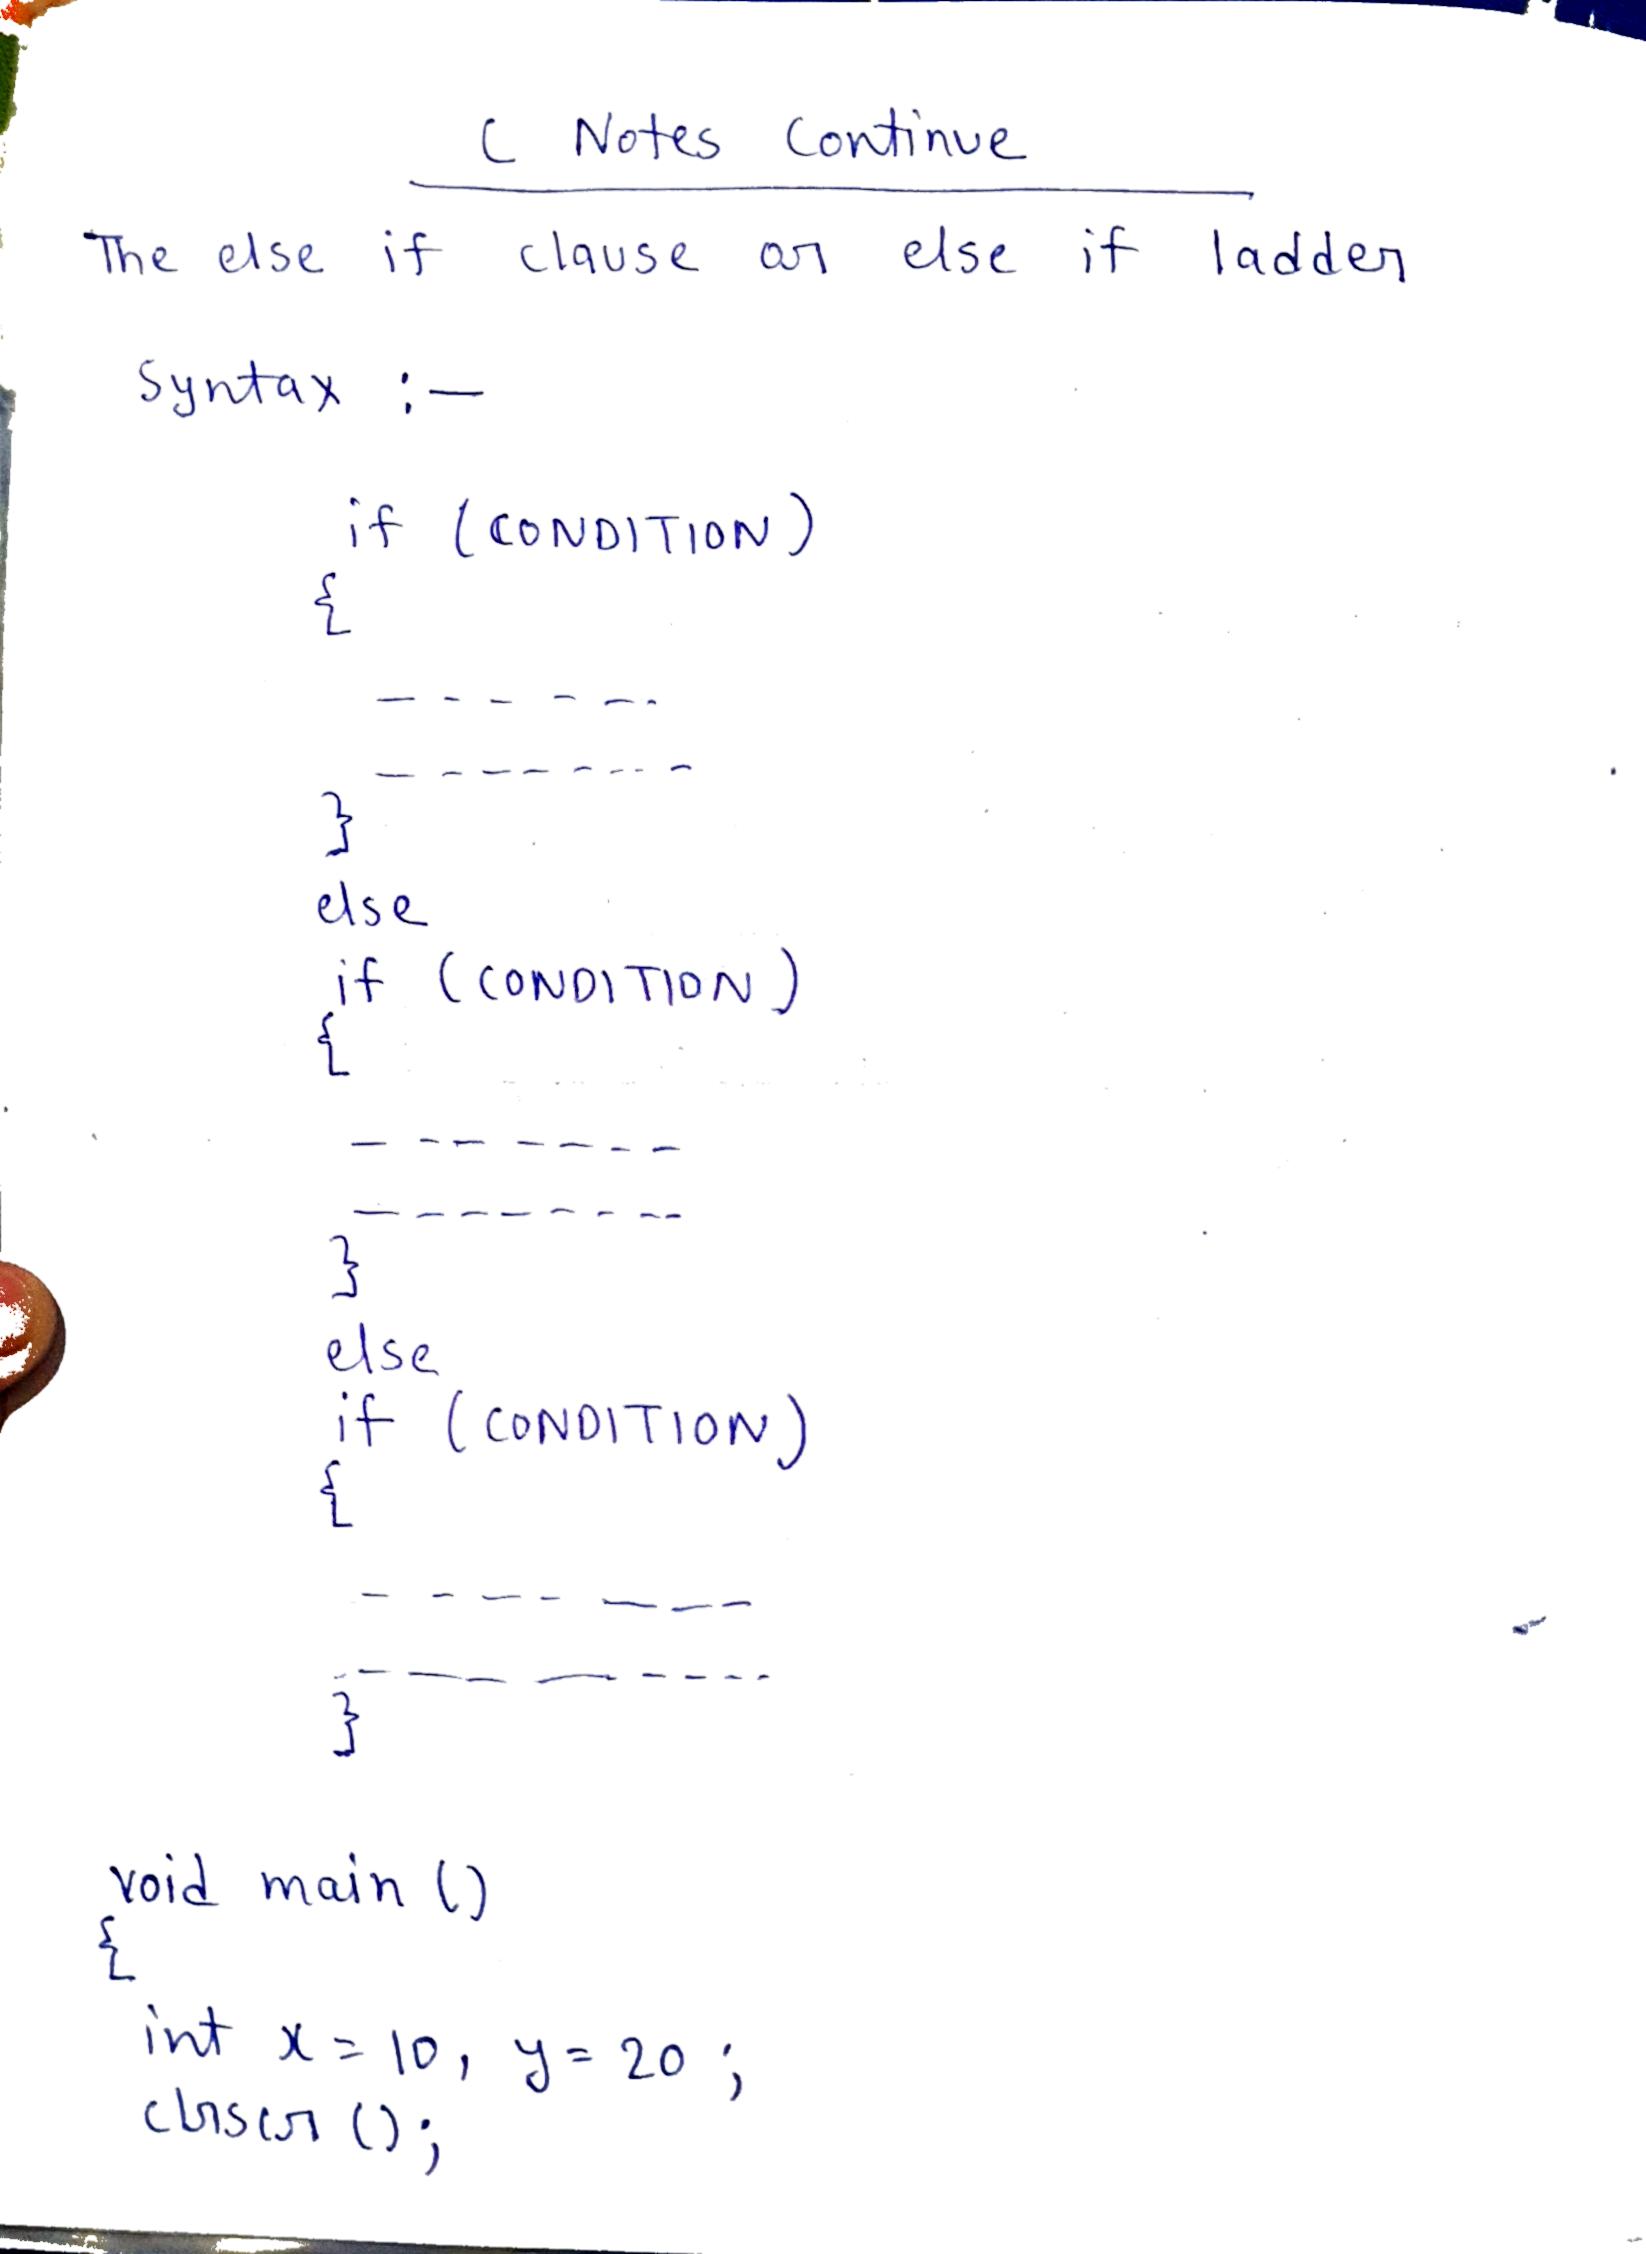 C Notes Continue
The else if clause or else if ladder
Syntax :-
if (CONDITION)
{
- - - - - -
- - - - - - - -
}
else
if (CONDITION)
{
- - - - - - -
- - - - - - - -
}
else
if (CONDITION)
{
- - - - - - -
- - - - - - - -
}
void main ()
{
int x = 10, y = 20 ;
clrscr ();